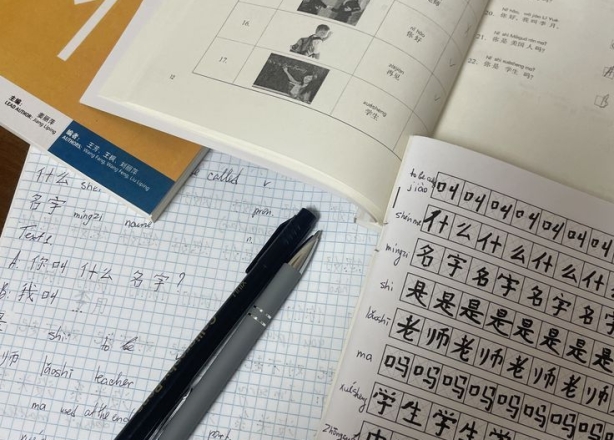 主编： 姜丽萍
LEAD AUTHOR: Jiang Liping
编者： 王芳、王枫、刘丽萍
AUTHORS: Wang Fang, Wang Feng, Liu Liping
12
16.
nǐ hǎo
你好
17.
zàijiàn
再见
xuésheng
学生
20. 你好，我叫李月。
21. 你是美国人吗？
22. 你是学生吗？
什么
called v
名字 míngzi name
pron.
n.
Text 1
A: 你叫 什么 名字？
B: 我叫
shì to be
师 lǎoshī teacher
ma used at the end
to be called
jiào 叫叫叫叫叫叫叫
shénme 什么什么什么什
míngzi 名字名字名字名字
shì 是是是是是是是是
lǎoshī 老师老师老师老师
ma 吗吗吗吗吗吗吗
xuésheng 学生学生学生